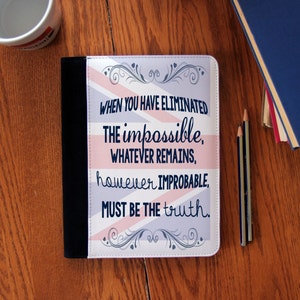 WHEN YOU HAVE ELIMINATED
THE impossible,
WHATEVER REMAINS,
however IMPROBABLE,
MUST BE THE truth.